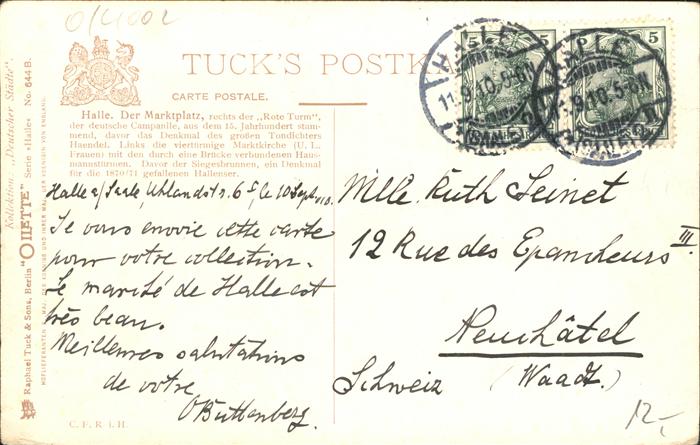 0/4002
TUCK'S POSTK
CARTE POSTALE.
Halle. Der Marktplatz, rechts der „Rote Turm",
der deutsche Campanile, aus dem 15. Jahrhundert stam-
mend, davor das Denkmal des großen Tondichters
Haendel. Links die viertürmige Marktkirche (U. L.
Frauen) mit den durch eine Brücke verbundenen Haus-
mannstürmen. Davor der Siegesbrunnen, ein Denkmal
für die 1870/71 gefallenen Hallenser.
Halle a/Saale, Uhlandstr. 6 I, le 10 Sept. 10.
Je vous envoie cette carte
pour votre collection.
Le marché de Halle est
très beau.
Meilleures salutations
de votre
O Buttenberg.
C. F. R. i. H.
Kollektion „Deutscher Städte"
Raphael Tuck & Sons, Berlin "OILETTE" Serie »Halle« No. 644 B.
HALLE
HALLE
5
5
5
Mlle. Ruth Jeinet
12 Rue des Epancheurs III.
Neuchâtel
Schweiz (Waadt.)
12,-